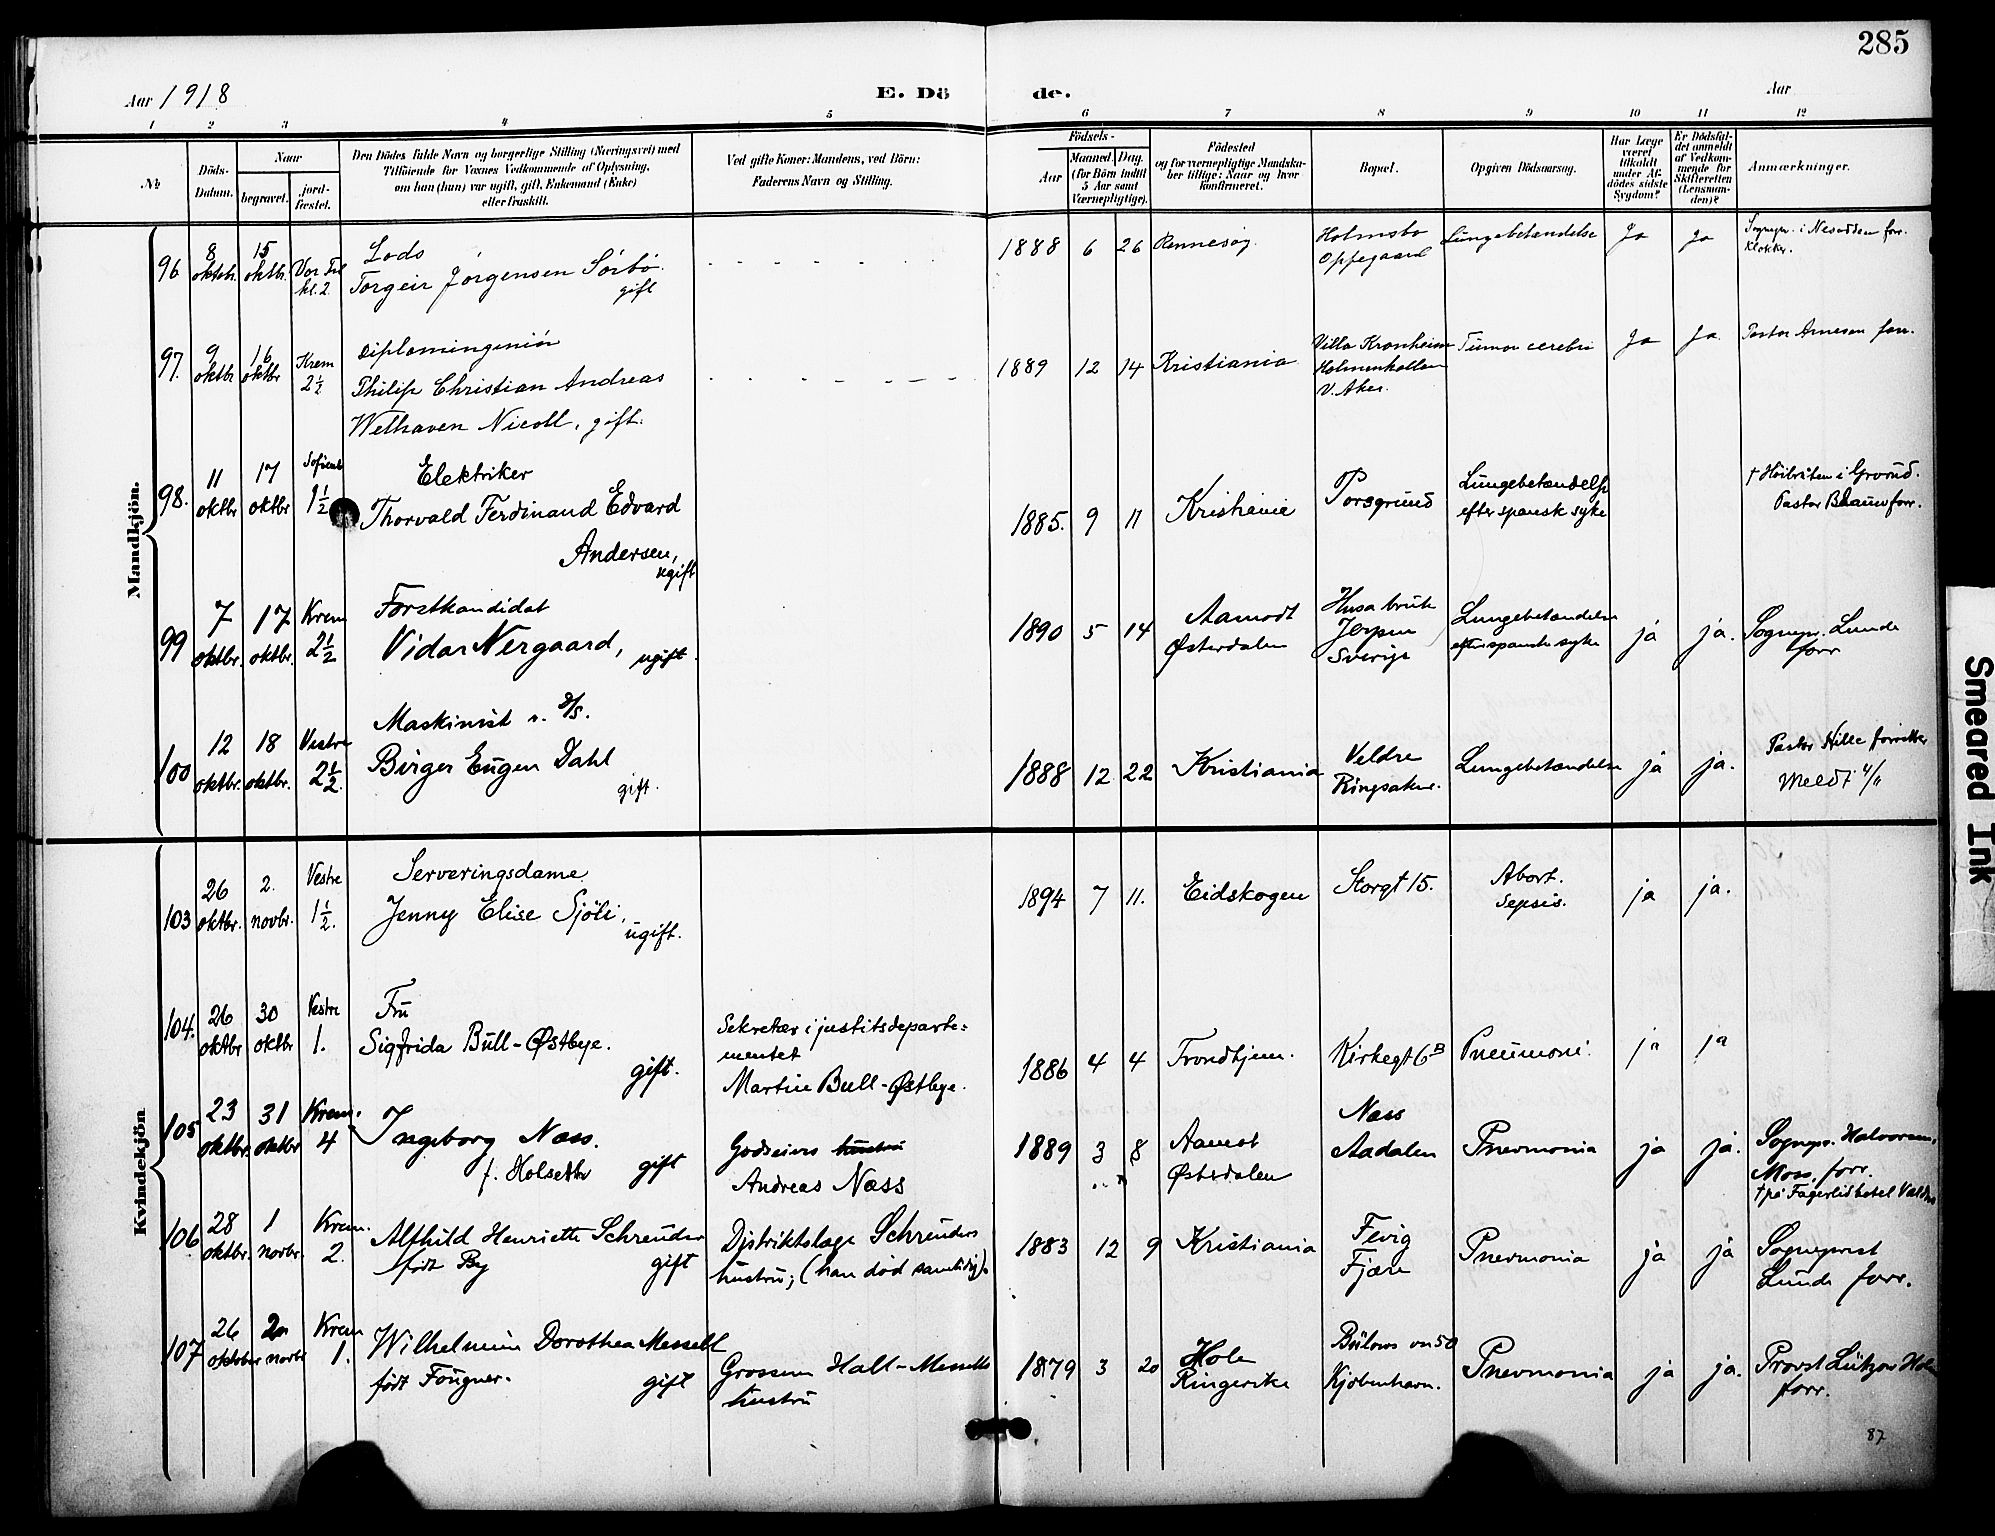 285
Aar 1918
E. Dö
de.
Aar
1 2 3 4 5 6 7 8 9 10 11 12
No
Döds-
Datum.
Naar
begravet.
jord-
fæstet.
Den Dödes fulde Navn og borgerlige Stilling (Næringsvei) med
Tilföiende for Voxnes Vedkommende af Oplysning,
om han (hun) var ugift, gift, Enkemand (Enke)
eller fraskilt.
Ved gifte Koner: Mandens, ved Börn:
Faderens Navn og Stilling.
Födsels-
Aar
Maaned. Dag.
(for Börn indtil
5 Aar samt
Værnepligtige).
Födested
og for værnepligtige Mandska-
ber tillige: Naar og hvor
konfirmeret.
Bopæl.
Opgiven Dödsaarsag.
Har Læge
været
tilkaldt
under Af-
dödes sidste
Sygdom?
Er Dödsfal-
det anmeldt
af Vedkom-
mende for
Skifteretten
(Lensman-
den)?
Anmærkninger.
Mandkjön.
96 8 oktobr. 15 oktbr. Vor Frl kl. 2
Lods
Torgeir Jørgensen Sørbø.
gift
1888 6 26 Rennesøy.
Holmsbo
Oppegaard
Lungebetændelse Ja Ja
Sognepr. i Nesodden forr.
Klokker.
97. 9 oktbr 16 oktbr Krem 2½
Diplomingeniør
Philip Christian Andreas
Welhaven Nicoll, gift.
1889 12 14 Kristiania
Villa Kronheim
Holmenkollen
V. Aker.
Tumor cerebri Ja Ja.
Pastor Arnesen forr.
98. 11 oktbr 17 oktbr Sofienb 1½
Elektriker
Thorvald Ferdinand Edvard
Andersen,
ugift
1885. 9 11 Kristiania Porsgrund
Lungebetændelse
efter spansk syke
† Høibråten i Grorud.
Pastor Blauw forr.
99 7 oktbr. 17 oktbr. Krem 2½
Forstkandidat
Vidar Nergaard,
ugift.
1890 5 14
Aamodt
Østerdalen
Husa bruk
Jerpen
Sverige
Lungebetændelse
efter spanske syke
ja ja.
Sognepr. Lunde
forr
100 12 oktbr. 18 oktbr. Vestre 2½.
Maskinist v. D/S.
Birger Eugen Dahl
gift.
1888 12 22 Kristiania
Veldre
Ringsaker.
Lungebetændelse ja ja.
Pastor Hille forretter
Meldt 4/11
Kvindekjön
103 26 oktbr. 2. novbr. Vestre 1½.
Serveringsdame
Jenny Elise Sjöli,
ugift.
1894 7 11. Eidskogen Storgt 15.
Abort.
Sepsis.
ja ja.
104. 26 oktbr 30 oktbr Vestre 1.
Fru
Sigfrida Bull-Østbye.
gift.
Sekretær i justitsdeparte-
mentet
Martin Bull-Østbye.
1886 4 4 Trondhjem. Kirkegt 6B Pneumoni. ja ja
105 23 oktbr. 31 oktbr Krem. 4
Ingeborg Næss.
f. Holseth gift
Godseiers hustru
Andreas Næss
1889 3 8
Aamot
Østerdalen
Næss
Aadalen
Pnevmonia ja ja.
Sognepr. Halvorsen,
Moss, forr.
† på Fagerlid hotel Valdres
106 28 oktbr. 1 novbr. Krem. 2.
Alfhild Henriette Schreuder
født By gift
Distriktslæge Schreuders
hustru; (han død samtidig).
1883 12 9 Kristiania
Fevig
Fjære
Pnevmonia ja ja
Sogneprest
Lunde forr.
107 26 oktober 2 novbr Krem 1.
Wilhelmine Dorothea Messell
født Fougner. gift
Grosserer Hall-Messells
hustru
1879 3 20
Hole
Ringerike
Bülows vei 50
Kjøbenhavn.
Pnevmonia ja ja.
Provst Lützow Hole
forr.
87
Smeared Ink